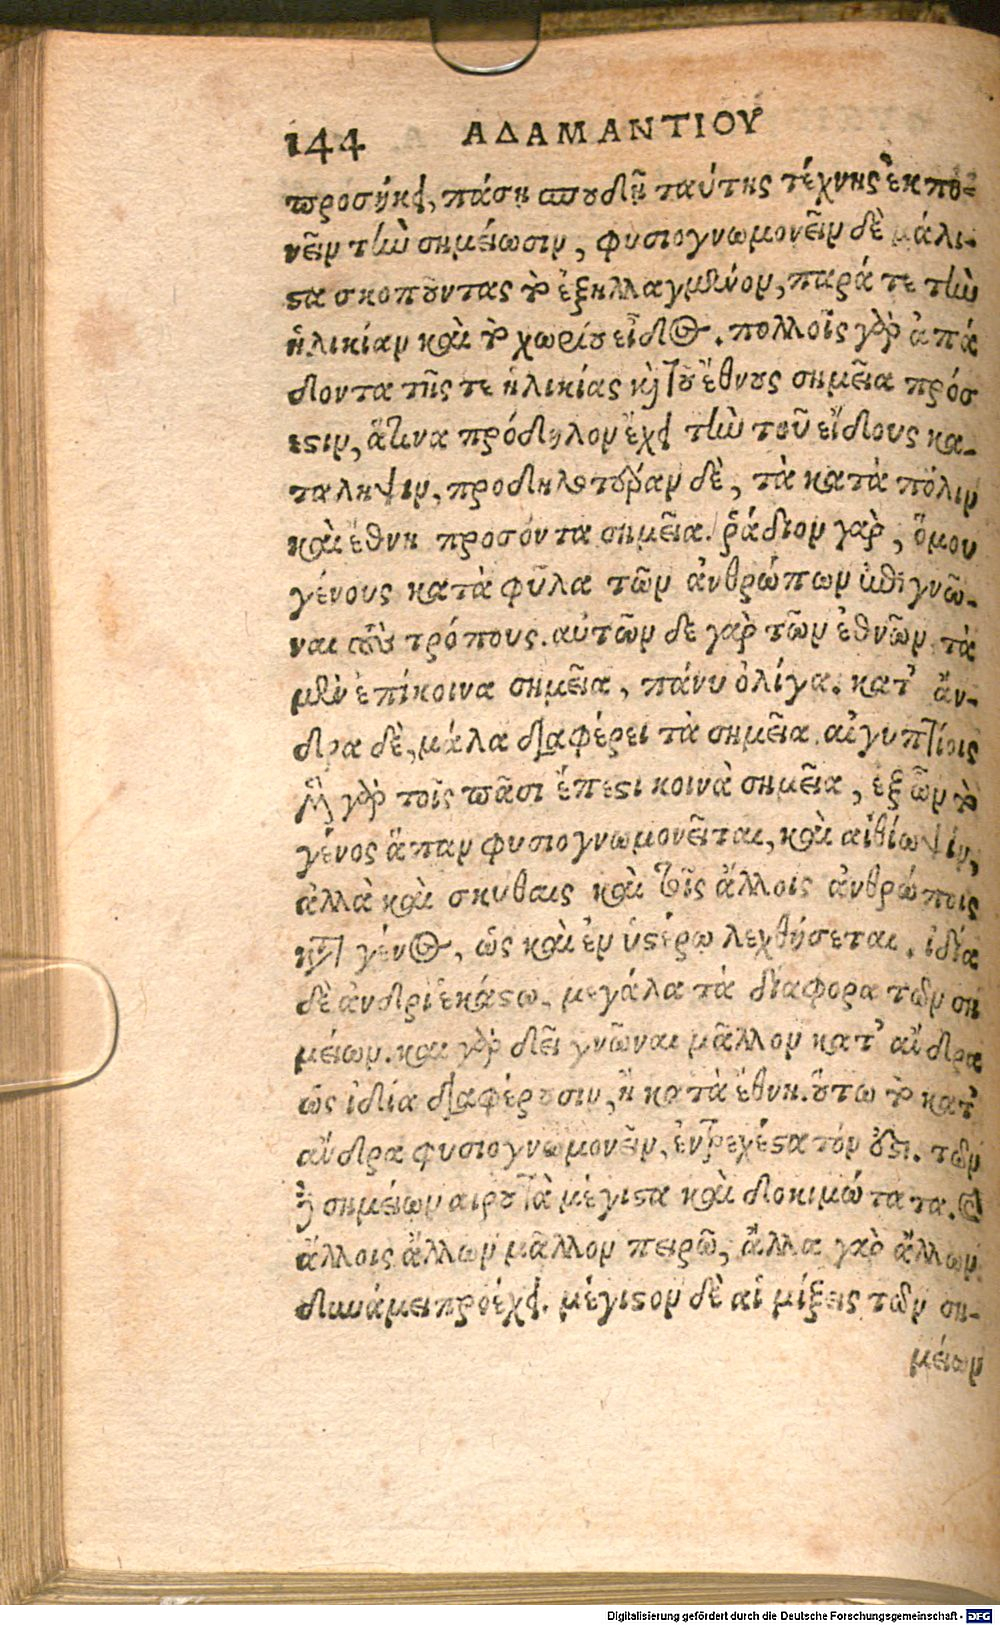 144 ΑΔΑΜΑΝΤΙΟΥ
προσήκει, πάσῃ σπουδῇ ταύτης τέχνης ἐκπο-
νεῖν τὴν σημείωσιν, φυσιογνωμονεῖν δὲ μάλι-
στα σκοποῦντας τὸ ἐξηλλαγμένον, παρά τε τὴν
ἡλικίαν καὶ τὸ χωρίου εἶδος. πολλοῖς γὰρ ἀπά
δοντα τῆς τε ἡλικίας καὶ τοῦ ἔθνους σημεῖα πρόσ
εστιν, ἅτινα πρόδηλον ἔχει τὴν τοῦ εἴδους κα-
τάληψιν, προδηλοτέραν δὲ, τὰ κατὰ πόλιν
καὶ ἔθνη προσόντα σημεῖα. ῥάδιον γαρ, ὅμου
γένους κατὰ φῦλα τῶν ἀνθρώπων ἐπιγνῶ-
ναι τοὺς τρόπους. αὐτῶν δε γαρ τῶν ἐθνῶν τὰ
μὲν ἐπίκοινα σημεῖα, πάνυ ὀλίγα. κατ' ἄν-
δρα δὲ, μάλα διαφέρει τὰ σημεῖα. αἰγυπτίοις
μὲν γὰρ τοῖς πᾶσι ἔπεστι κοινὰ σημεῖα, ἐξ ὧν τὸ
γένος ἅπαν φυσιογνωμονεῖται, καὶ αἰθίωψιν,
ἀλλὰ καὶ σκυθαις καὶ τοῖς ἄλλοις ἀνθρώποις
κατὰ γένος, ὡς καὶ ἐν ὑστέρῳ λεχθήσεται. ἰδία
δὲ ἀνδρὶ ἑκάστω. μεγάλα τὰ διάφορα τῶν ση
μείων. και γὰρ δεῖ γνῶναι μᾶλλον κατ' ἄνδρα
ὡς ἰδία διαφέρουσιν, ἢ κατὰ ἔθνη. οὕτω τὸ κατ'
ἄνδρα φυσιογνωμονεῖν, ἐντρεχέστατόν ἐστι. τῶν
δὲ σημείων αιροῦ τὰ μέγιστα καὶ δοκιμώτατα.
ἄλλοις ἄλλων μᾶλλον πειρῶ, ἄλλα γὰρ ἄλλων
δυνάμει προέχει. μέγιστον δὲ αἱ μίξεις τῶν ση-
μείων
Digitalisierung gefördert durch die Deutsche Forschungsgemeinschaft - DFG